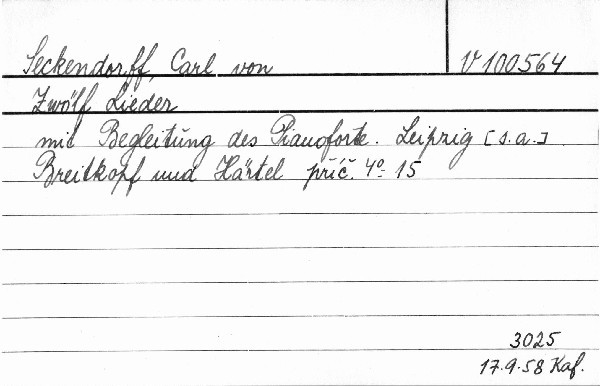 Seckendorff, Carl von V 100564
Zwölf Lieder
mit Begleitung des Pianoforte. Leipzig [s.a.]
Breitkopf und Härtel příč. 4º 15
3025
17.9.58 Kaf.